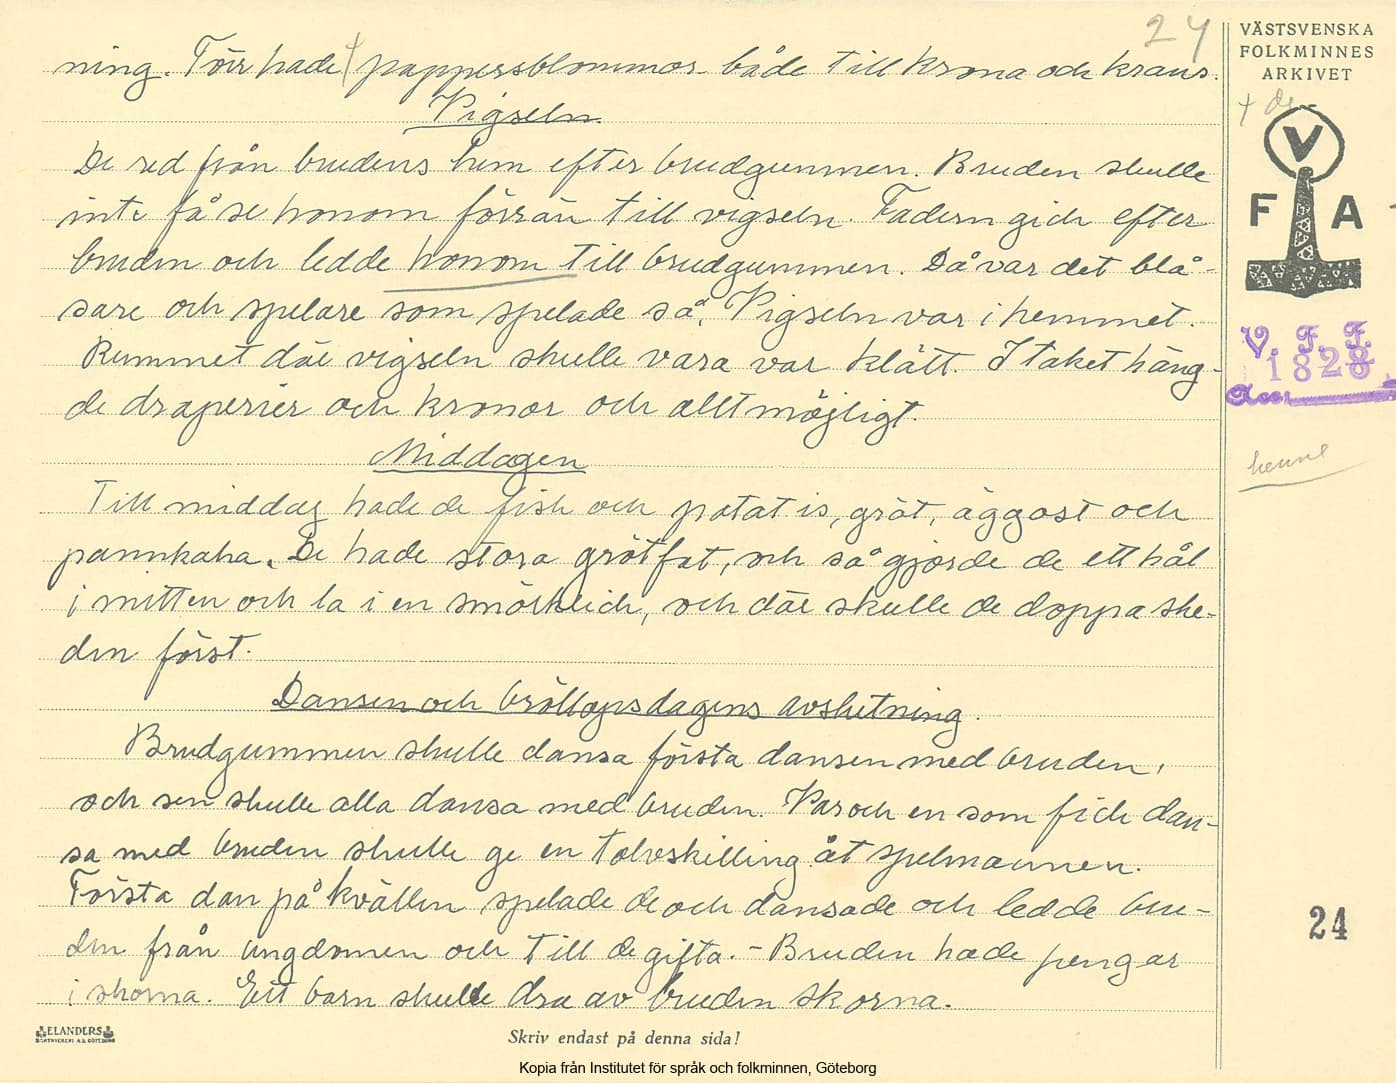 24
ning. Förr hade + pappersblommor både till krona och krans.
Vigseln.
De red från brudens hem efter brudgummen. Bruden skulle
inte få se honom förrän till vigseln. Fadern gick efter
bruden och ledde honom till brudgummen. Då var det blå-
sare och spelare som spelade så. Vigseln var i hemmet.
Rummet där vigseln skulle vara var klätt. I taket häng-
de draperier och kronor och allt möjligt.
Middagen
Till middag hade de fisk och potatis, gröt, äggost och
pannkaka. De hade stora grötfat, och så gjorde de ett hål
i mitten och la i en smörklick, och där skulle de doppa ske-
den först.
Dansen och bröllopsdagens avslutning.
Brudgummen skulle dansa första dansen med bruden,
och sen skulle alla dansa med bruden. Var och en som fick dan-
sa med bruden skulle ge en tolvskilling åt spelmannen.
Första dan på kvällen spelade de och dansade och ledde bru-
den från ungdomen och till de gifta. - Bruden hade pengar
i skorna. Ett barn skulle dra av bruden skorna.
ELANDERS
Skriv endast på denna sida!
Kopia från Institutet för språk och folkminnen, Göteborg
VÄSTSVENSKA
FOLKMINNES
ARKIVET
+ de
V
F A
V. F. F.
1828
Acc.
henne
24